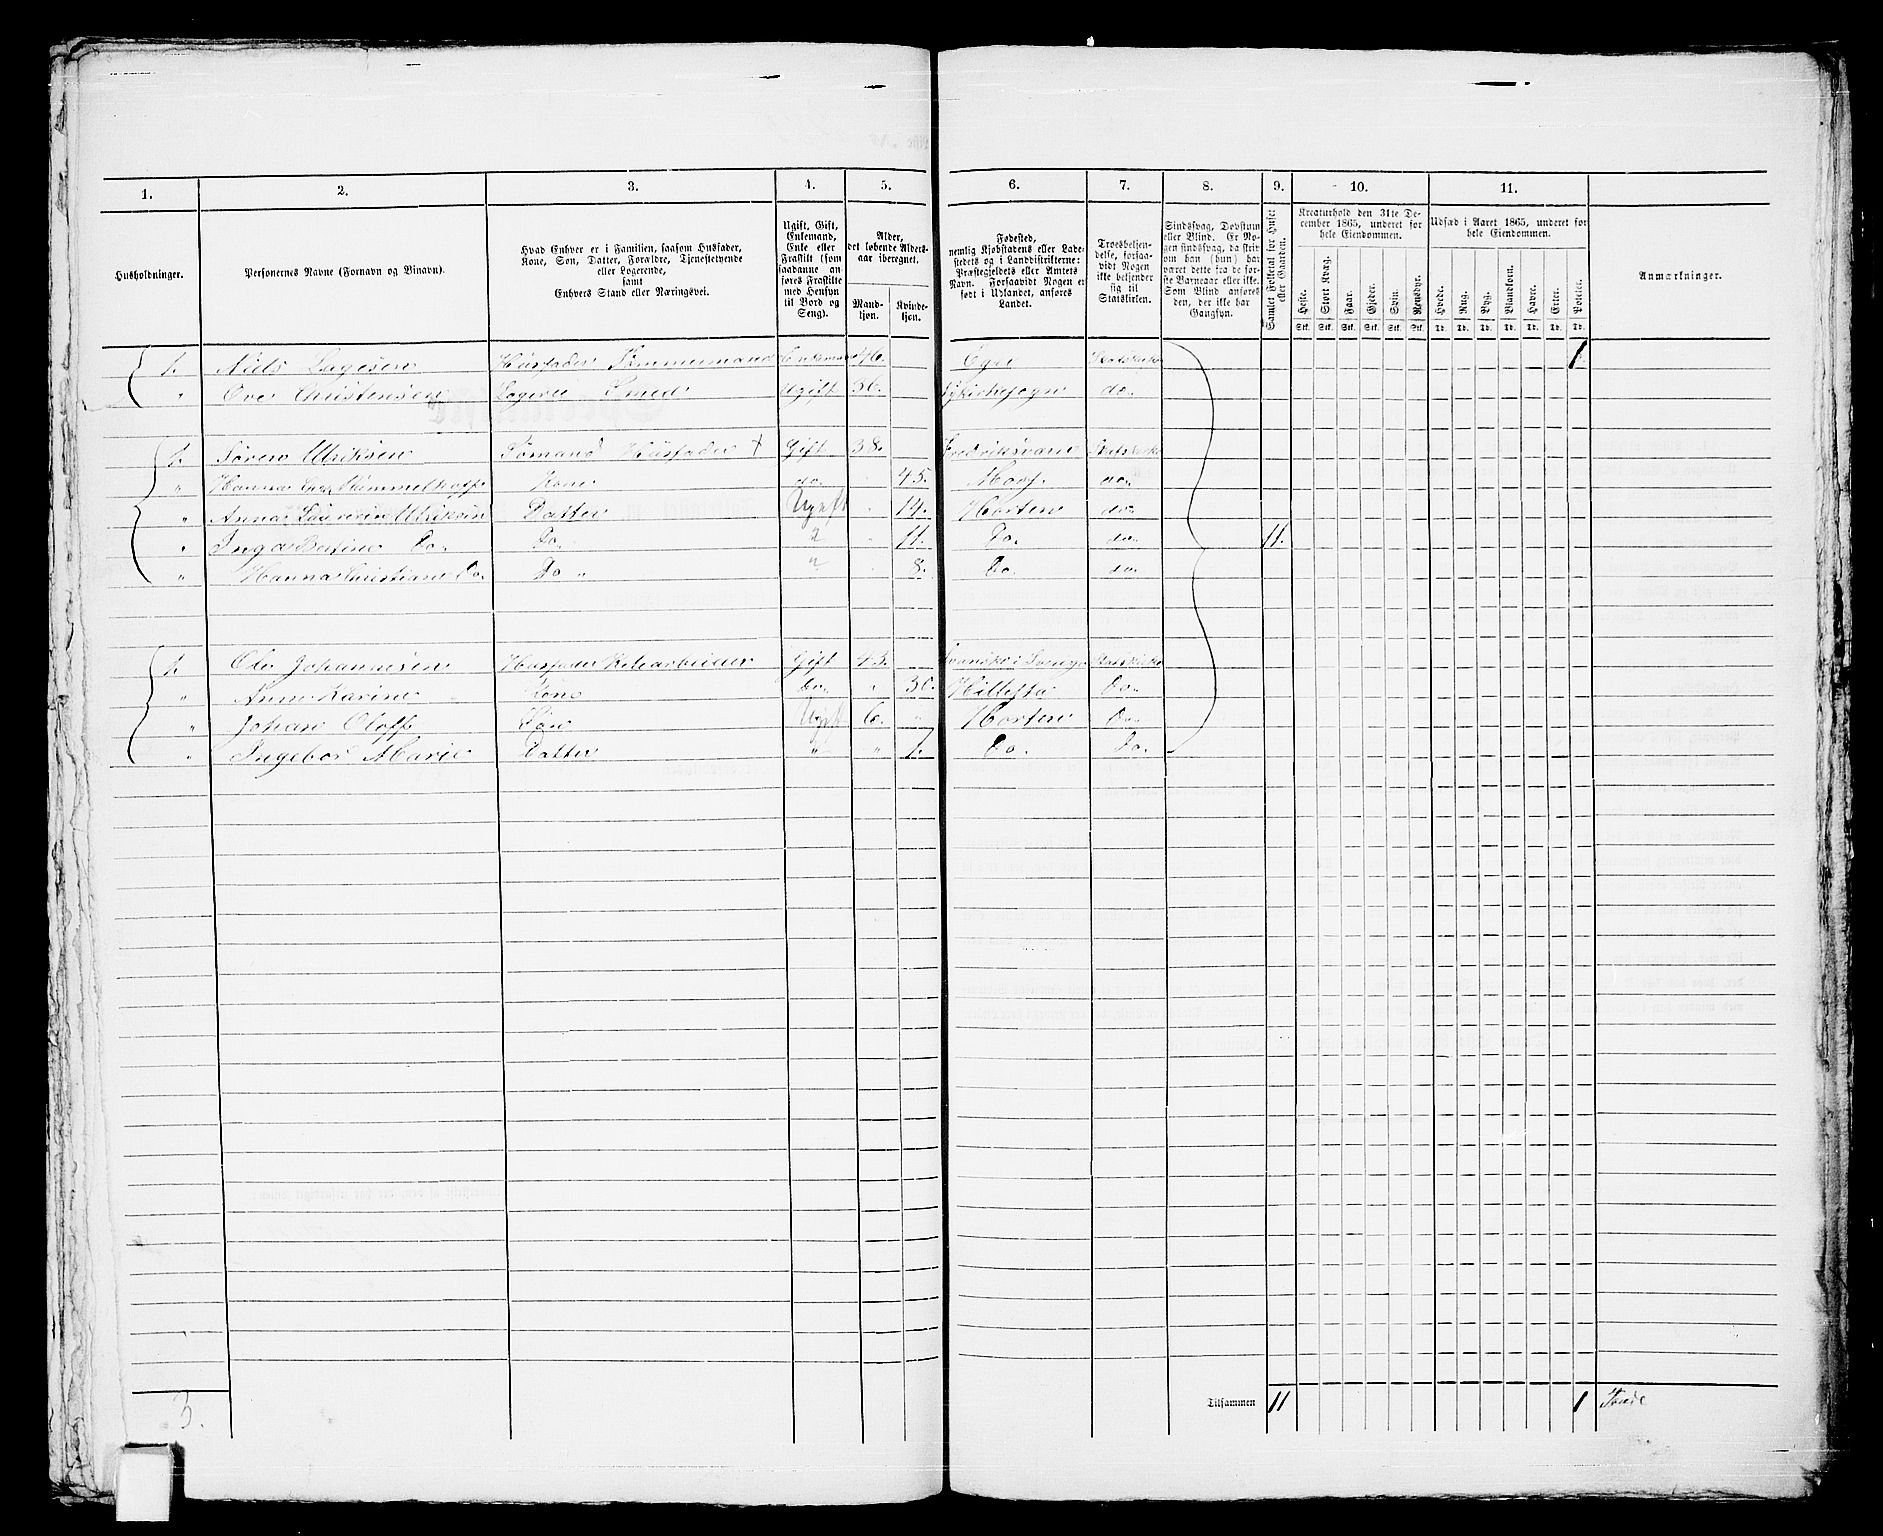 1. 2. 3. 4. 5. 6. 7. 8. 9. 10. 11.
Husholdninger.
Personernes Navne (Fornavn og Binavn).
Hvad Enhver er i Familien, saasom Husfader, Kone, Søn, Datter, Forældre, Tjenestetyende eller Logerende, samt Enhvers Stand eller Næringsvei.
Ugift, Gift, Enkemand, Enke eller Fraskilt (som saadanne anføres Fraskilte med Hensyn til Bord og Seng).
Alder, det løbende Aldersaar iberegnet.
Mandkjøn. Kvindekjøn.
Fødested, nemlig Kjøbstadens eller Ladestedets og i Landdistrikterne: Præstegjeldets eller Amtets Navn. Forsaavidt Nogen er født i Udlandet, anføres Landet.
Troesbekjendelse, forsaavidt Nogen ikke bekjender sig til Statskirken.
Sindssvag, Døvstum eller Blind. Er Nogen sindssvag, da skrives om han (hun) har været dette fra de første Barneaar eller ikke. Som Blind anføres den, der ikke har Gangsyn.
Samlet Folketal for Huset eller Gaarden.
Kreaturhold den 31te December 1865, underet for hele Eiendommen.
Heste. Stort Kvæg. Faar. Gjeder. Svin. Rensdyr.
Stk. Stk. Stk. Stk. Stk. Stk.
Udsæd i Aaret 1865, underet for hele Eiendommen.
Hvede. Rug. Byg. Blandkorn. Havre. Erter. Poteter.
Td. Td. Td. Td. Td. Td. Td.
Anmærkninger.
1. Niels Husfader Tømmermand Enkemand 46. Eger Statskirke 1
" Ove Christensen Logerer Smed Ugift 56. Nykirkesogn do.
1. Søren Ulriksen Sømand Husfader + Gift 38. Fredriksværn Statskirke
" Hanna Kone do. 45. do.
" Anna Ulriksen Datter Ugift 14. Horten do.
" Inga Do. Do. " 11. Do. do. 11.
" Hanna Christiane Do. Do " " 8. Do. do.
1. Ole Johannesen Husfader Gift 43. Statskirke
" Anne Karine Kone Do. " 30. Do.
" Johan Oloff Søn Ugift 6. " Horten Do.
" Ingebor Marie Datter " " 1. Do. Do.
3. Tilsammen 11 1